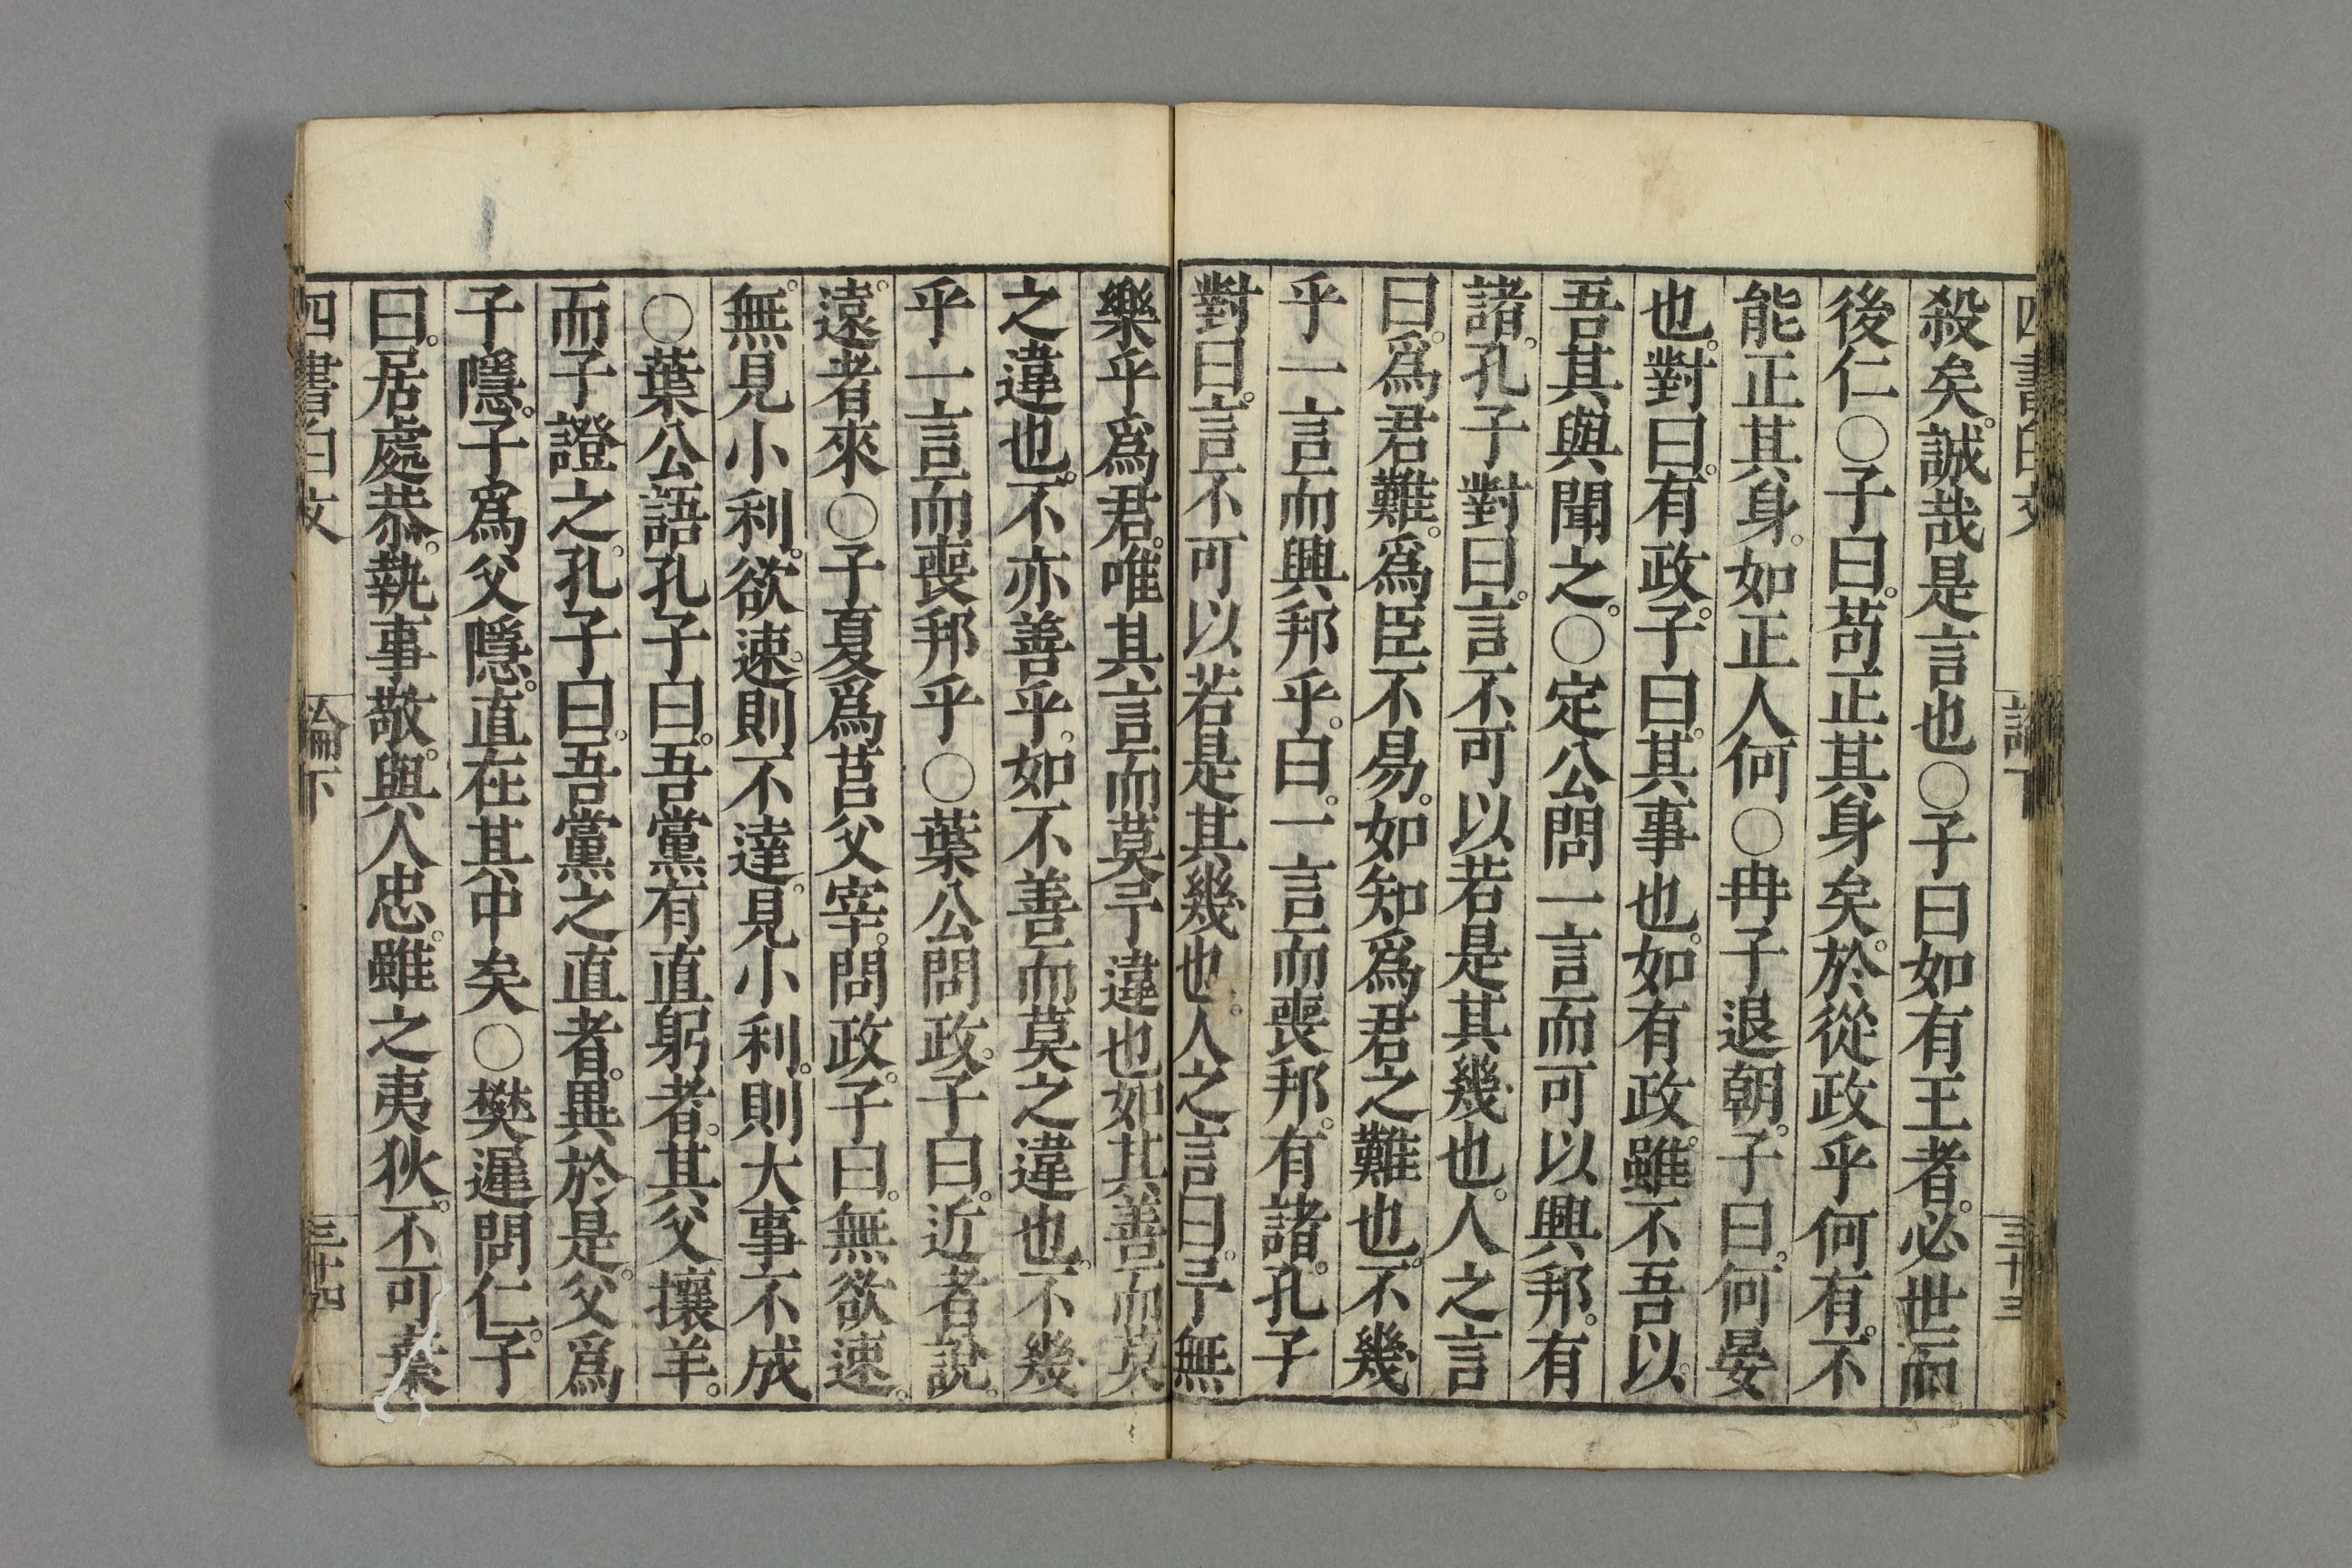 四書白文 論下 三十三
殺矣。誠哉是言也○子曰如有王者。必世而
後仁○子曰。苟正其身矣。於從政乎何有。不
能正其身。如正人何○冉子退朝。子曰。何晏
也。對曰。有政。子曰。其事也。如有政。雖不吾以。
吾其與聞之。○定公問一言而可以興邦。有
諸。孔子對曰。言不可以若是其幾也。人之言
曰。爲君難。爲臣不易。如知爲君之難也。不幾
乎一言而興邦乎。曰。一言而喪邦。有諸。孔子
對曰。言不可以若是其幾也。人之言曰。予無
樂乎爲君。唯其言而莫予違也如其善而莫
之違也。不亦善乎。如不善而莫之違也。不幾
乎一言而喪邦乎○葉公問政。子曰。近者說。
遠。者來○子夏爲莒父宰。問政。子曰。無欲速。
無。見小利。欲速。則不達。見小利。則大事不成
○葉公語孔子曰。吾黨有直躬者。其父攘羊。
而子證之。孔子曰。吾黨之直者。異於是。父爲
子隱。子爲父隱。直在其中矣○樊遲問仁。子
曰。居處恭。執事敬。與人忠。雖之夷狄。不可棄
四書白文 論下 三十四